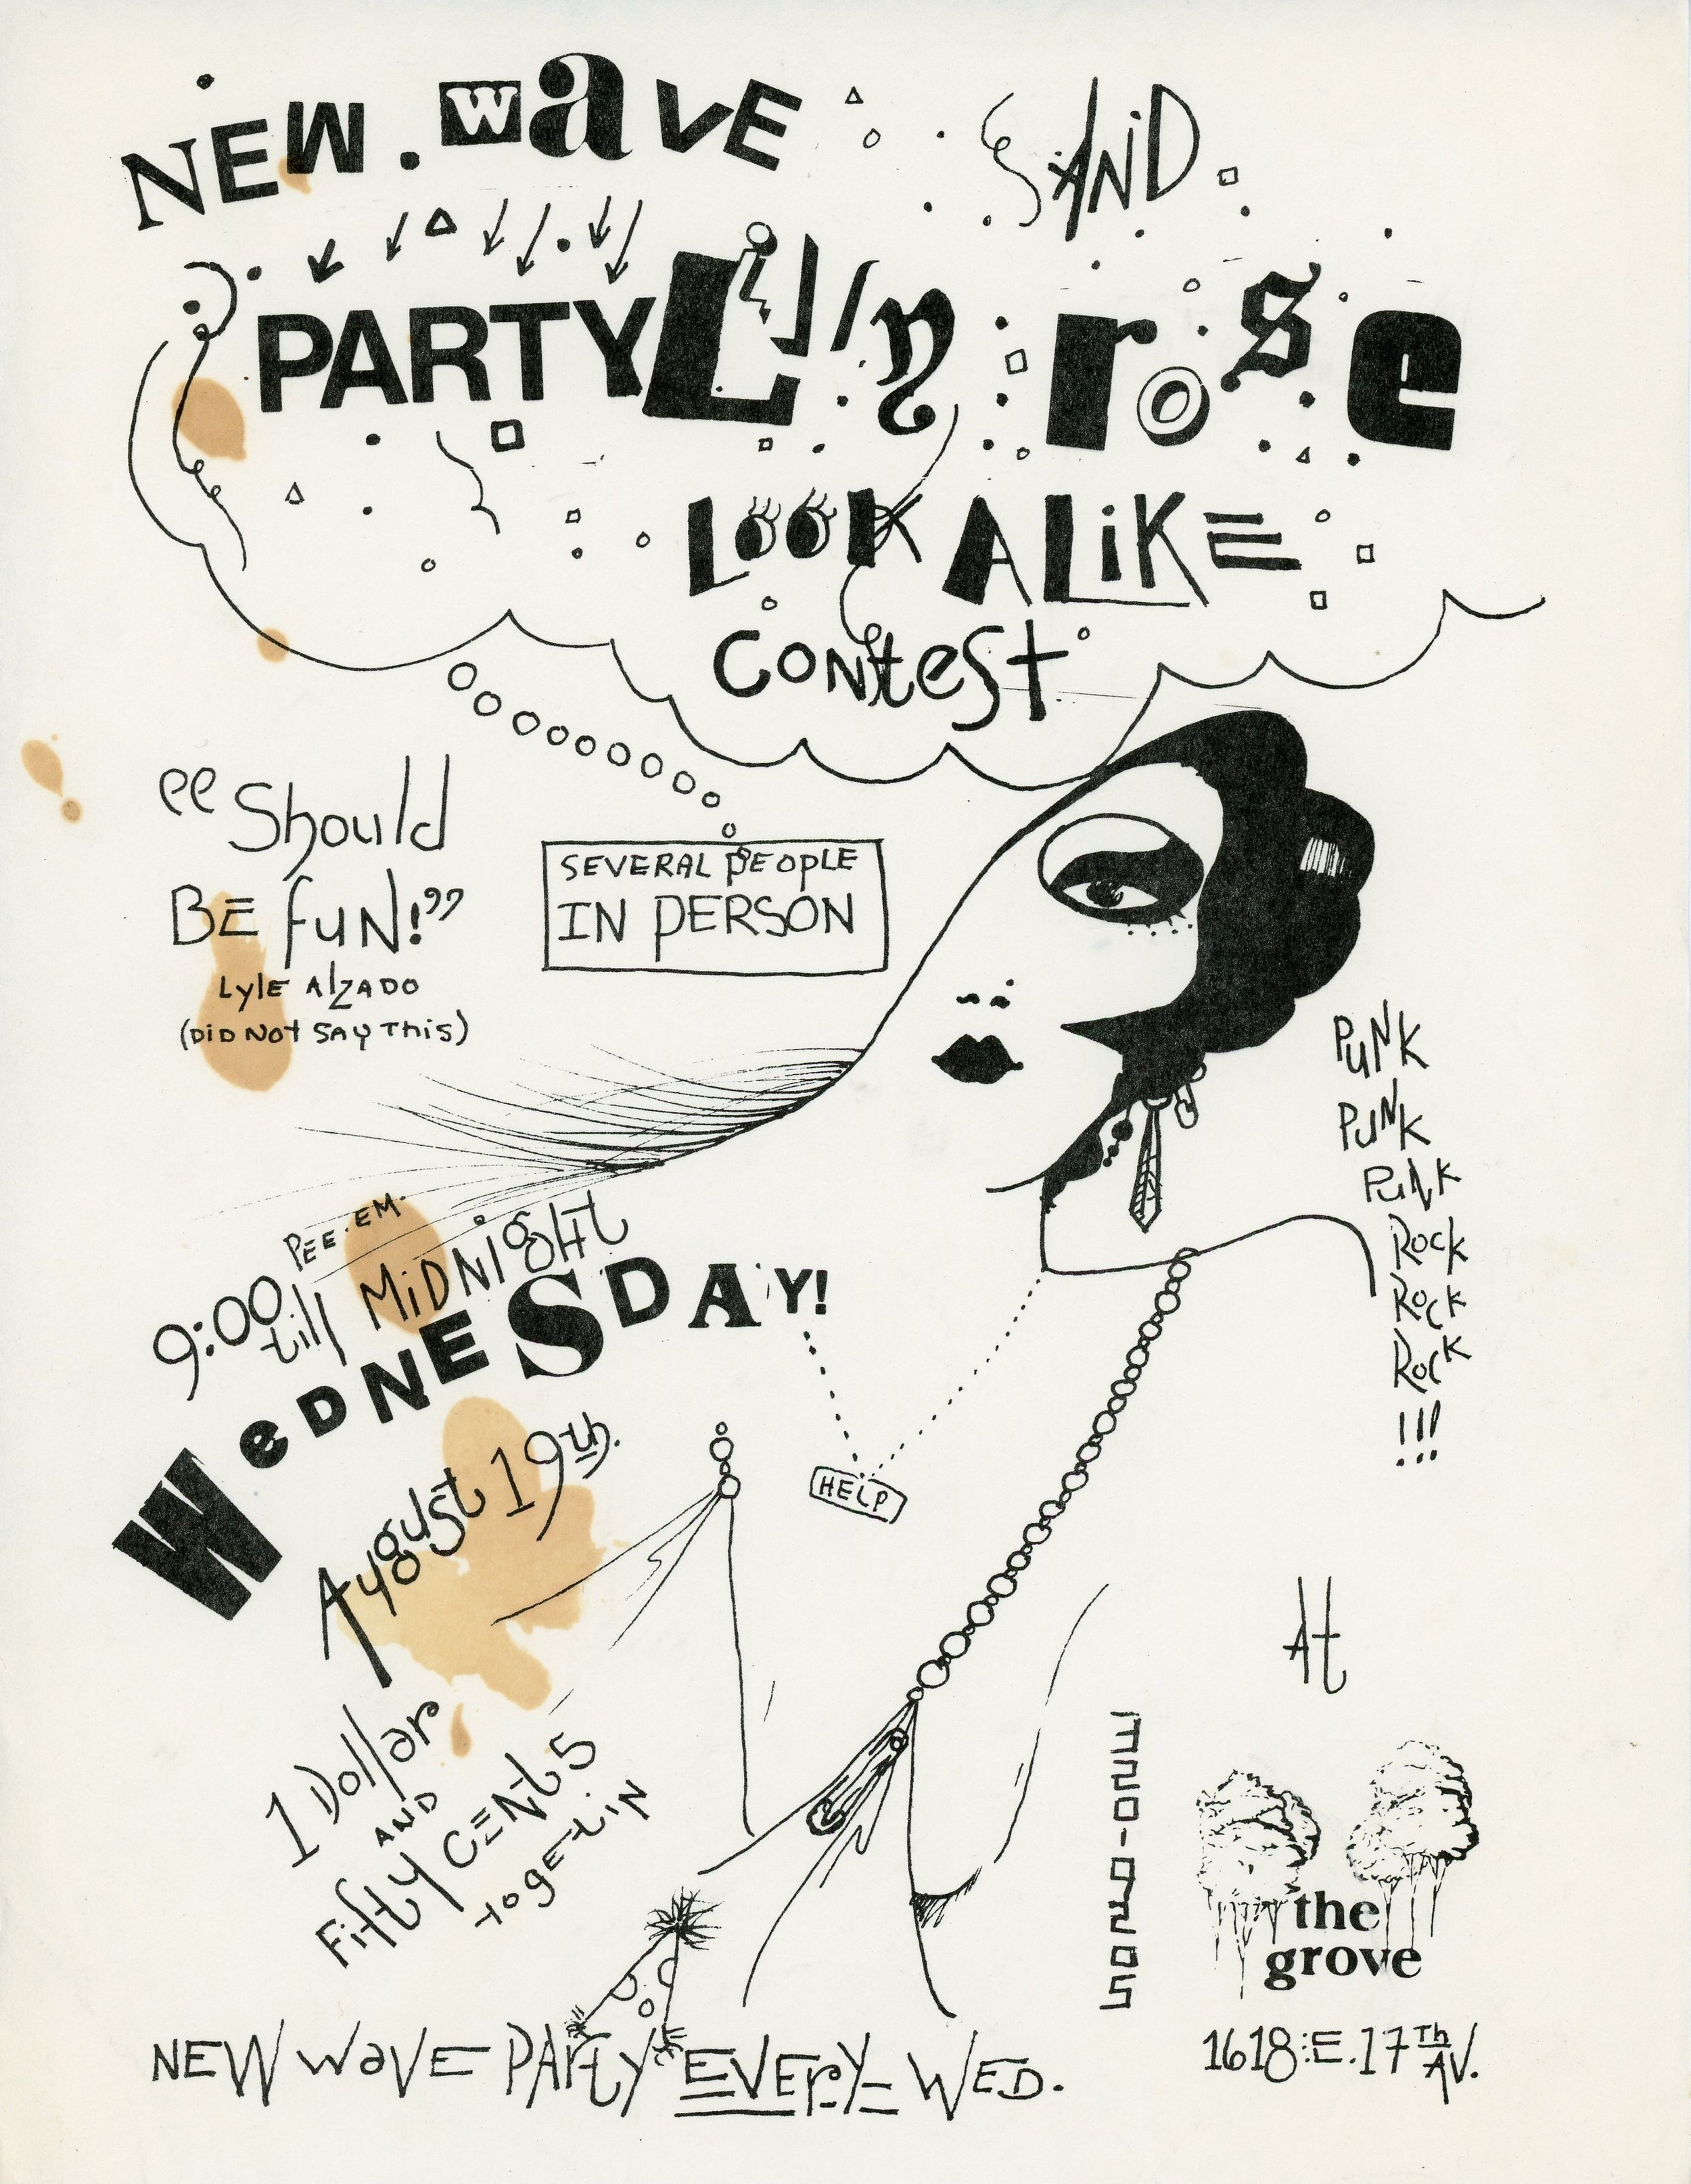 NEW. waVE
AND
PARTY
Lilly rose
LOOK ALiKE
CONteSt
"Should
BE fuN!"
LylE AlZADO
(DiD NOt SAY This)
SEVERAL PEOPLE
IN PERSON
PUNK
PUNK
PUNK
ROCK
ROCK
ROCK
!!!
9:00 PEE.EM.
till MiDNIgHt
WeDNESDAY!
August 19th.
HELP
1 Dollar
AND
Fifty CENtS
to gEt iN
At
the
grove
1618 E. 17Th AV.
NEW waVE PArty EVErY WED.